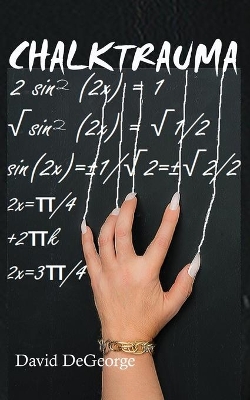 CHALKTRAUMA
2 sin² (2x) = 1
√ sin² (2x) = √ 1/2
sin(2x)=±1/√ 2=±√ 2/2
2x=π/4
+2πk
2x=3π/4
David DeGeorge